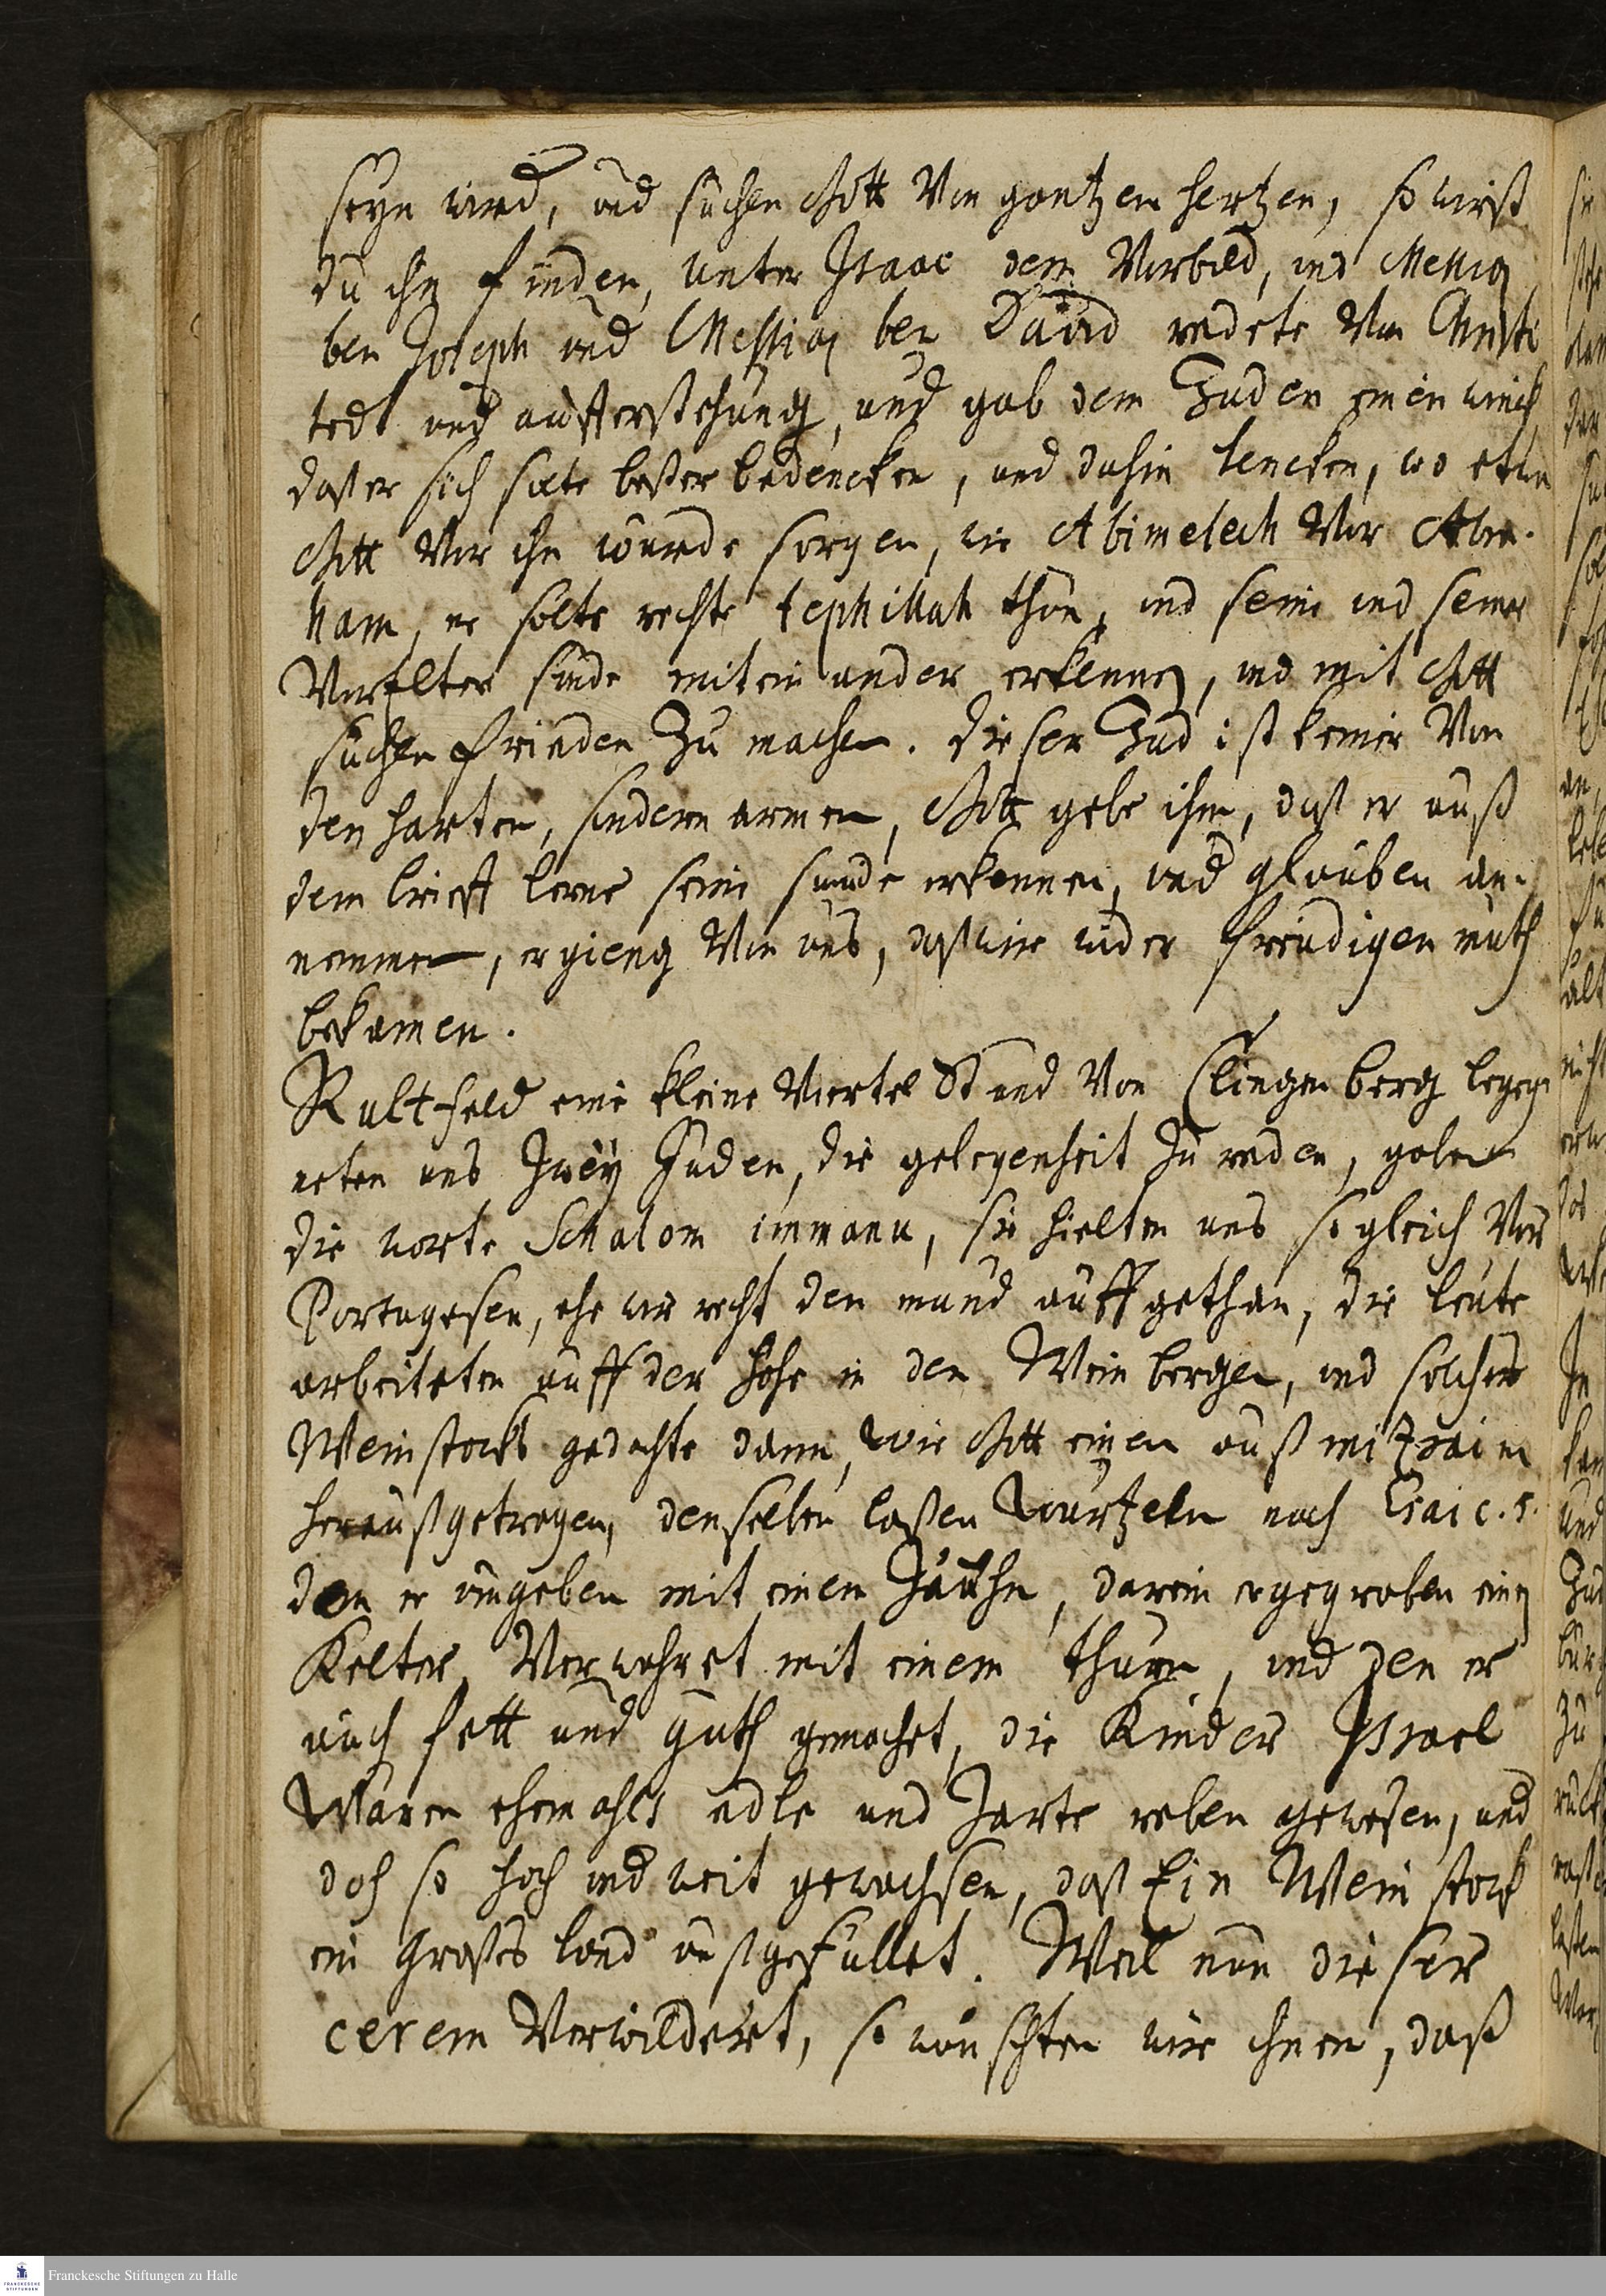 seyn wird, und suchen Gott Von gantzen hertzen, so wirst
du ihn finden, unter Isaac dem Vorbild, und Messia
ben Joseph und Messia ben David redete Von Christi
todt und aufferstehung, und gab dem Juden einen winck
daß er sich solte beßer bedencken, und dahin lencken, wo etwa
Gott Vor ihn würde sorgen, wie Abimelech Vor Abra-
ham, er solte rechte tephillah thun, und seine und seiner
Vorelter sünde mitein ander erkennen, und mit Gott
suchen frieden Zu machen. dieser Jud ist keiner Von
den harten, sondern armen, Gott gebe ihm, daß er auß
dem brieff lerne seine sünde erkennen, und glauben an-
nemmen, er gieng Von uns, daß wir wider freudigen muth
bekamen.
Rultfeld eine kleine Viertel Stund Von Clingenberg begeg-
neten uns Zwey Juden, die gelegenheit Zu reden, gaben
die worte Schalom immanu, sie hielten uns so gleich Vor
Portugesen, ehe wir recht den mund auffgethan, die leute
arbeiteten auff der höhe in den Weinbergen, und solches
Weinstocks gedachte dann, wie Gott einen auß mitzraim
heraußgetragen, denselben laßen Wurtzeln nach Esai c. 5.
den er umgeben mit einem Zauhn, darein er gegraben einen
Kelter, Verwahret mit einem thurn, und den er
auch fett und guth gemachet, die Kinder Israel
Waren ehemahls edle und Zarte reben gewesen, und
doch so hoch und weit gewachsen, daß Ein Wein stock
ein großes land außgefüllet. Weil nun dieser
cerem Verwildert, so wünschten wir ihnen, daß
Franckesche Stiftungen zu Halle